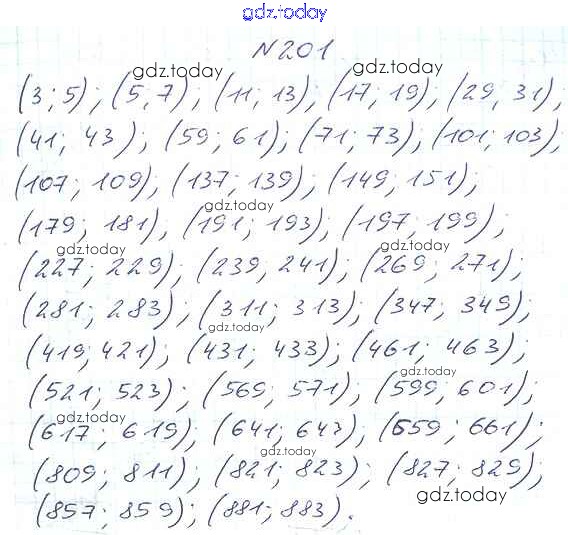 gdz.today
N 201
gdz.today gdz.today
(3; 5); (5, 7); (11; 13); (17; 19); (29, 31);
(41; 43); (59; 61); (71; 73); (101; 103);
gdz.today gdz.today
(107; 109); (137; 139); (149; 151);
gdz.today
(179; 181), (191; 193); (197, 199);
gdz.today gdz.today
(227; 229); (239, 241); (269; 271);
(281; 283); (311; 313); (347; 349);
gdz.today
(419; 421); (431; 433); (461; 463);
(521; 523); (569; 571); (599; 601);
gdz.today
(617; 619); (641; 643); (659; 661);
(809; 811); (821; 823); (827; 829);
gdz.today gdz.today
(857; 859); (881; 883).